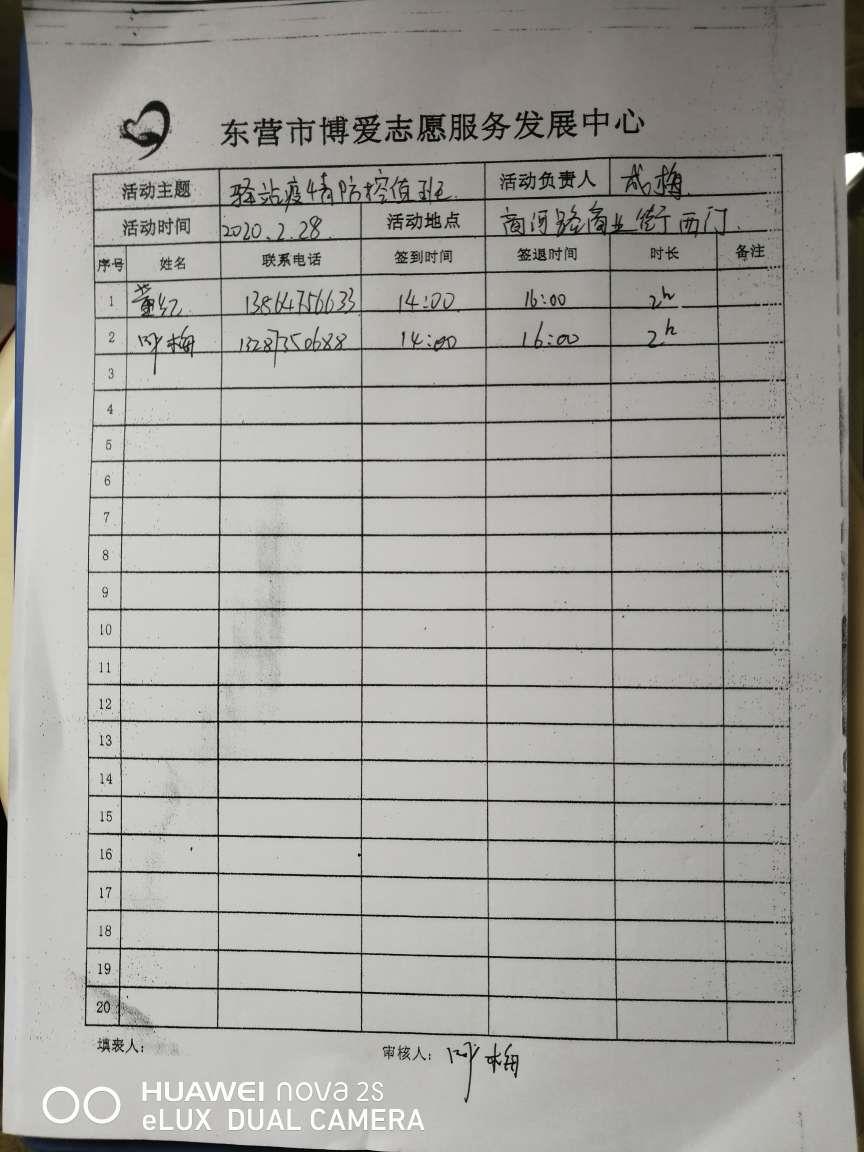 东营市博爱志愿服务发展中心
活动主题 驿站疫情防控值班 活动负责人 武梅
活动时间 2020.2.28 活动地点 商河路商业街西门.
序号 姓名 联系电话 签到时间 签退时间 时长 备注
1 黄红 13864756633 14:00 16:00 2h
2 梅 13287350688 14:00 16:00 2h
3
4
5
6
7
8
9
10
11
12
13
14
15
16
17
18
19
20
填表人： 审核人： 梅
HUAWEI nova 2S
eLUX DUAL CAMERA